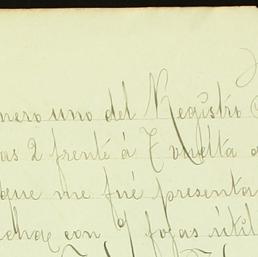 mero uno del Registro
as 2 frente á 7 vuelta
que me fué presenta
con 9 fojas útil